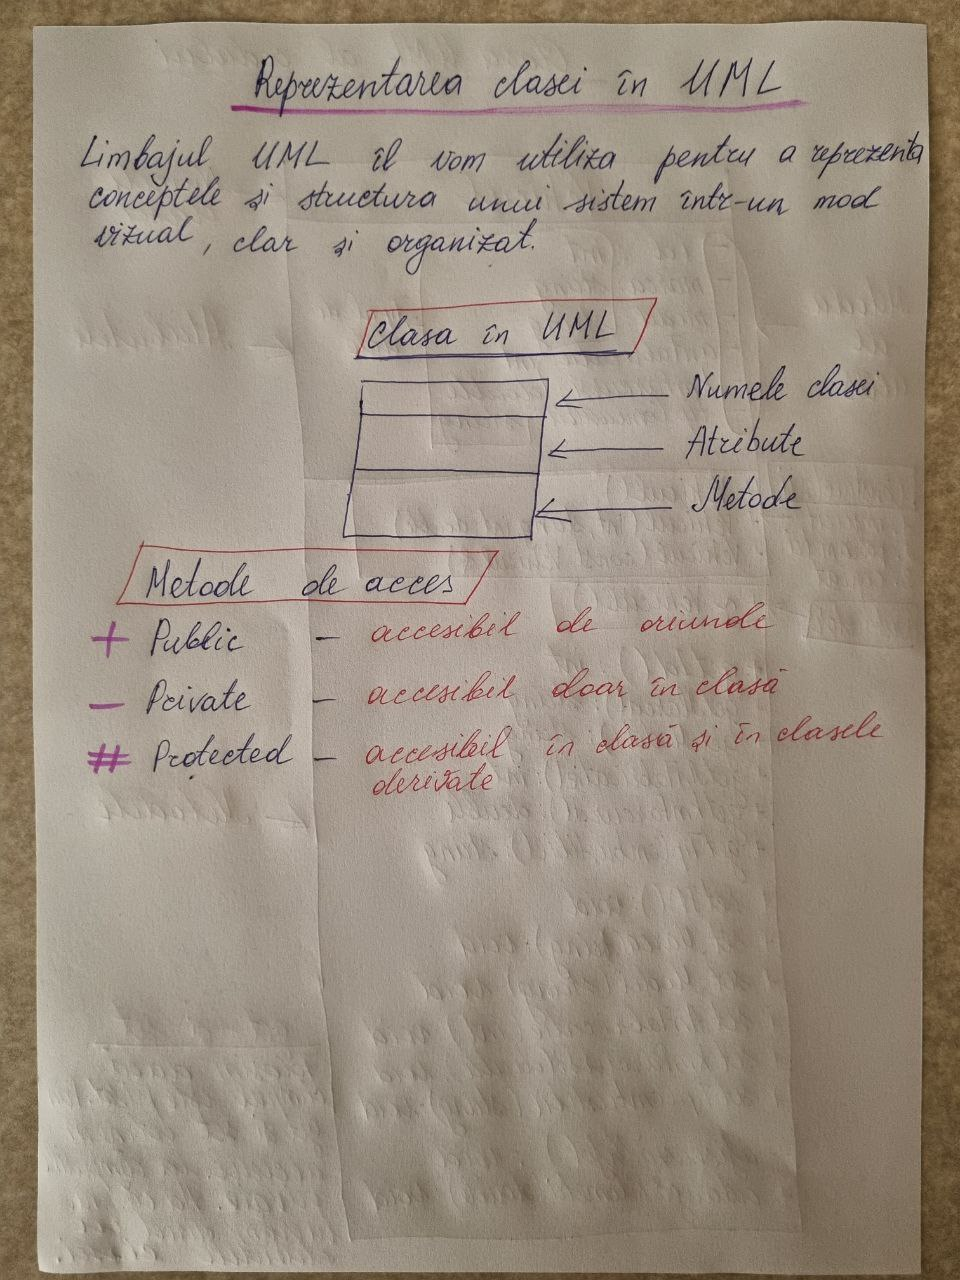 Reprezentarea clasei în UML
Limbajul UML îl vom utiliza pentru a reprezenta
conceptele și structura unui sistem într-un mod
vizual, clar și organizat.
Clasa în UML
Numele clasei
Atribute
Metode
Metode de acces
+ Public - accesibil de oriunde
- Private - accesibil doar în clasă
# Protected - accesibil în clasă și în clasele
derivate